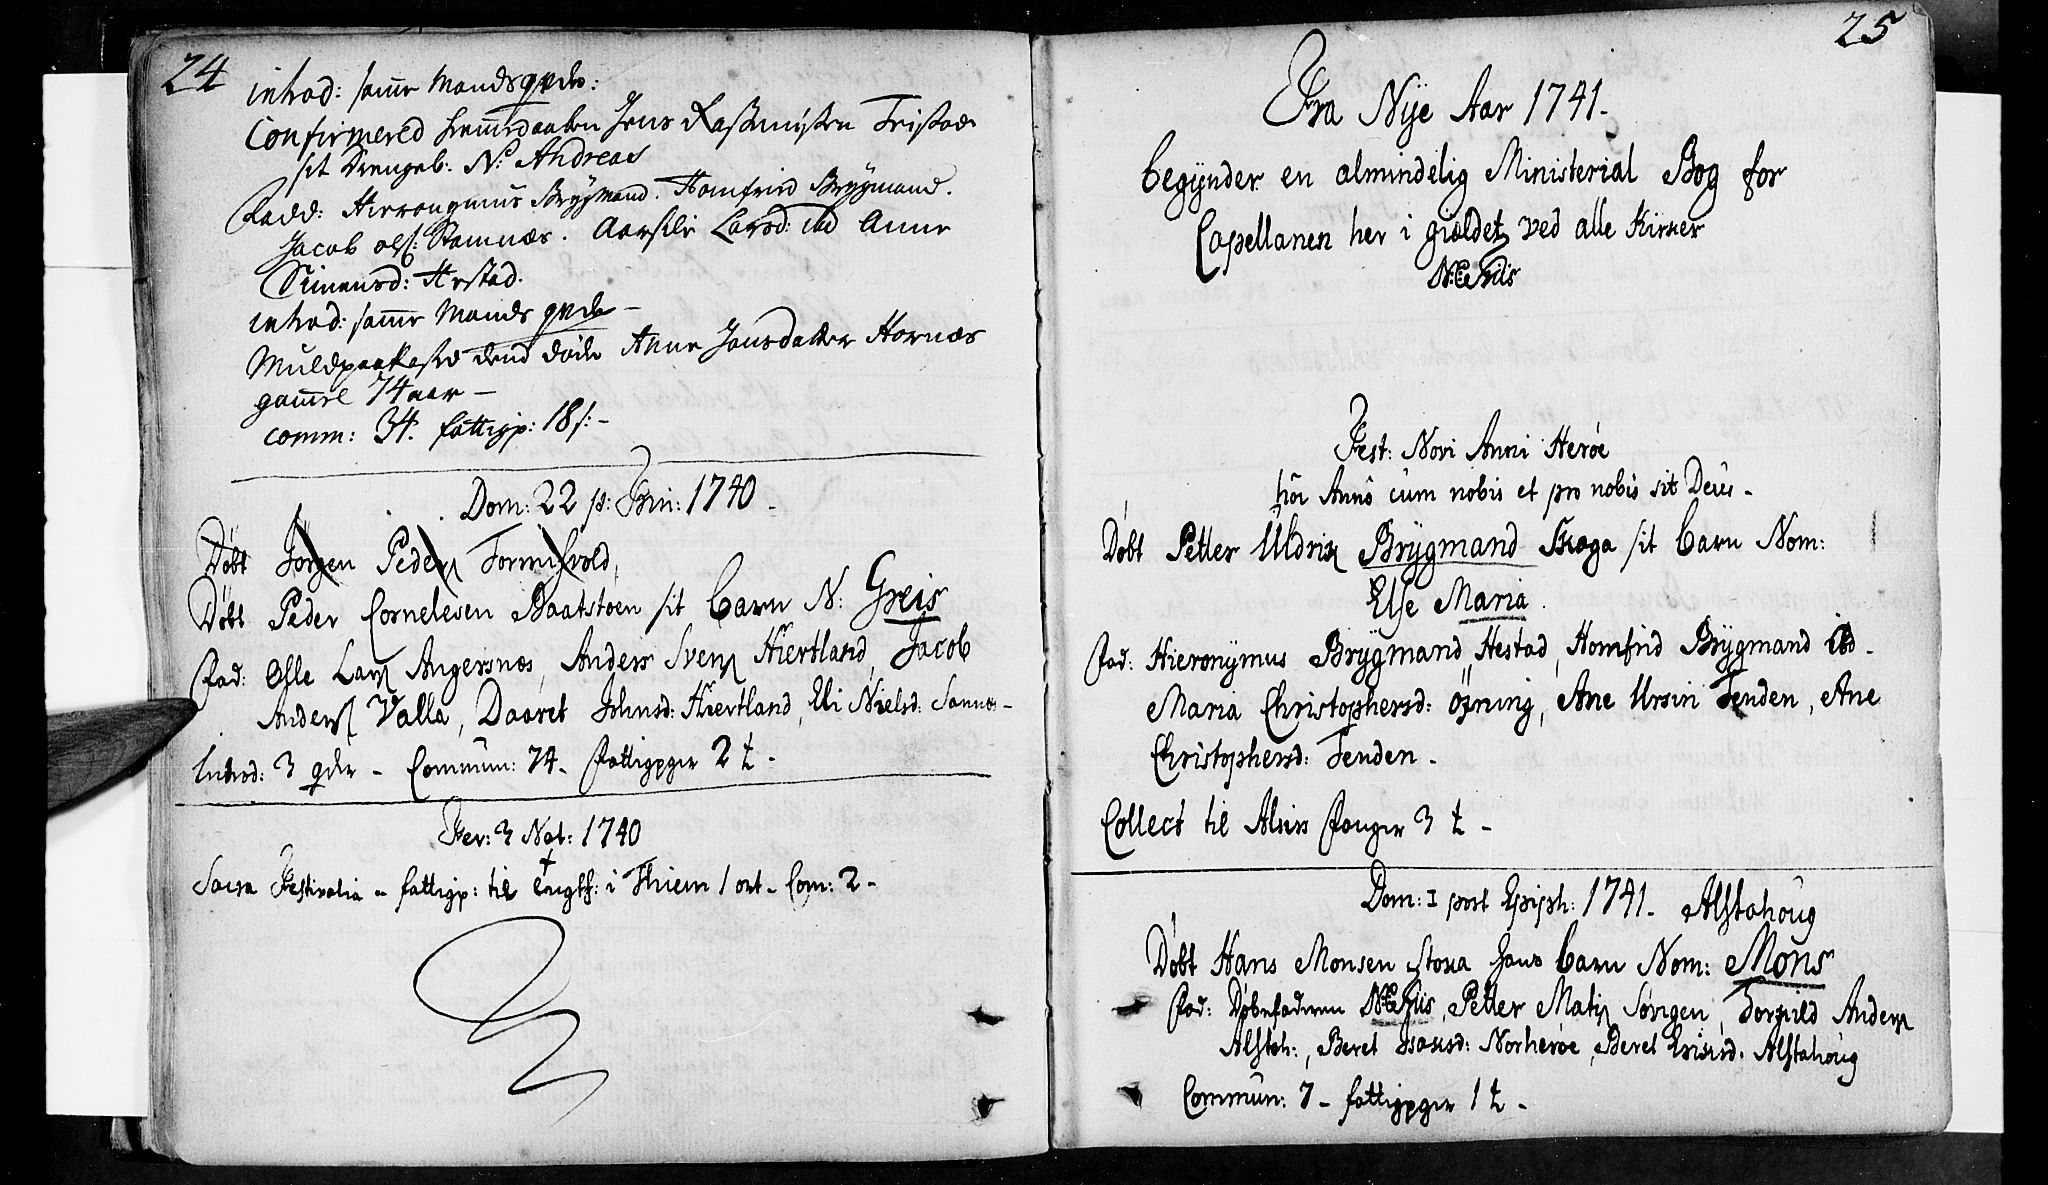 24
introd: samme Mands qvde:
Confirmered hiemedaaben Jens Rasmusen Tristad
sit Drengeb: N: Andreas
Fadd: Hieronymus Brygmand. Homfrid Brygmand.
Jacob ols: Stamnæs. Aarsle Larsd: ibd Anne
Simensd: Hestad.
introd: samme Mands qvde -
Muldpaakaste dend døde Anne Jensdatter Hornæs
gamel 74 aar -
comm: 34. fattigp: 18 s: -
Dom: 22 p: Trin: 1740 -
Døbt Jørgen Peders Formisvold,
Døbt Peder Cornelesen Baatstøen sit barn N: Greis
Fad: Ole Lars Angersnæs, Anders Svens Hiertland, Jacob
Anders Valla, Daaret Johnsd: Hiertland, Eli Nielsd: Sannæs -
Introd: 3 qder - Commun: 74 - Fattigpger 2 t -
Fer: 3 Nat: 1740
Sacra Festivalia - fattigp: til i Thiem 1 ort - Com: 2 -
25
Fra Nye Aar 1741 -
begynder en almindelig Ministerial Bog for
Capellanen her i giældet ved alle Kirker
N: C: Friis
Fest: Novi Anni Herøe
hoc Anno cum nobis et pro nobis sit Deus -
Døbt Petter Uldrix Brygmand Skaga sit barn Nom:
Else Maria.
Fad: Hieronymus Brygmand, Hestad, Homfrid Brygmand ibd -
Maria Christophersd: Øxning, Ane Ursin Tenden, Ane
Christophersd: Tenden -
Collect til Slaver Penger 3 t -
Dom: I post Epiph: 1741 - Alstahoug
Døbt Hans Monsen Stoxa hans barn Nom: Mons
Fad: Døbefaderen N: C: Friis, Petter Matis Sørigen, Torgild Anders
Alstah:, Beret Isaksd: Norherøe, Beret Erixsd: Alstahoug
Commun: 7 - fattigpger 1 t -